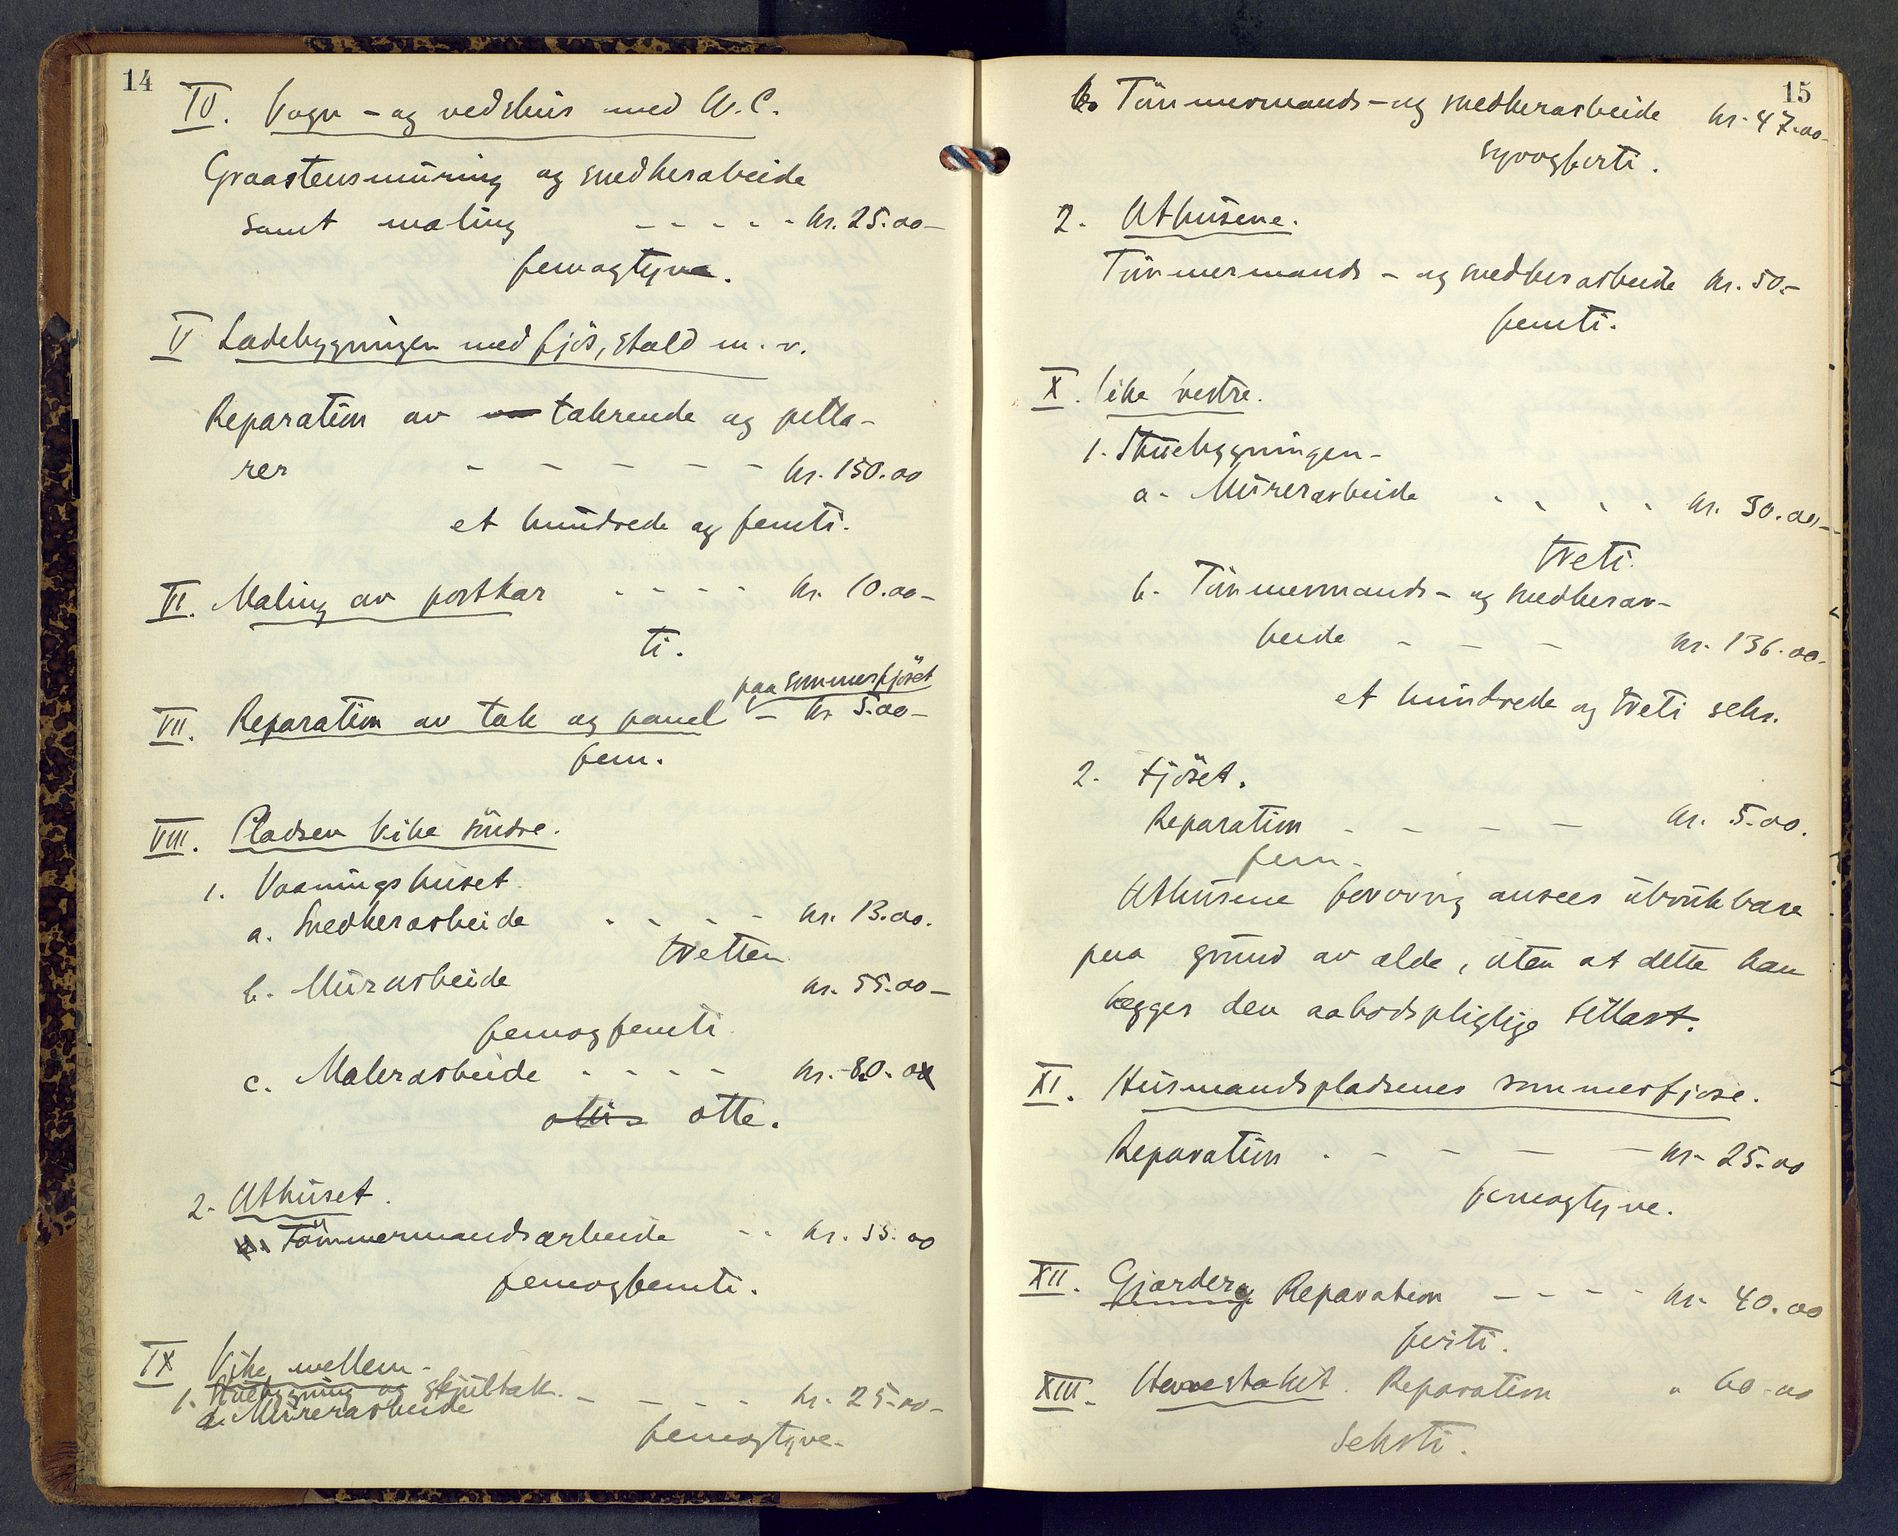 14
IV. Vogn - og vedskur med W.C.
Graastensmuring og snedkerabeide
samt maling - - - - - kr. 25.00 -
femogtyve.
V Ladebygningen med fjøs, stald m. v.
Reparation av takrende og pilla-
rer - - - - - kr. 150.00
et hundrede og femti.
VI. Maling av portkar - - - - kr. 10.00 -
ti.
paa sommerfjöset
VII. Reparation av tak og panel - kr. 5.00 -
fem.
VIII. Pladsen Vike söndre.
1. Vaaningshuset.
a. Snedkerarbeide - - - - kr. 13.00.
tretten
b. Murarbeide kr. 55.00 -
femogfemti.
c. Malerarbeide - - - - kr. 8.0.00
otti otte.
2. Uthuset.
a. Tömmermandsarbeide - - kr. 55.00
femogfemti.
IX Vike mellem.
1. Stuebygning og skjultak.
a. Murerarbeide - - - - kr. 25.00 -
femogtyve.
15
b. Tömmermands - og snedkerarbeide kr. 47.00 -
syvogforti.
2. Uthusene.
Tömmermands - og snedkerarbeide kr. 50.-
femti.
X. Vike vestre.
1. Stuebygningen -
a. Murerarbeide - - - - kr. 30.00. -
treti.
b. Tömmermands - og snedkerar-
beide - - - kr. 136.00.
et hundrede og treti seks.
2. Fjöset.
Reparation - - - - kr. 5.00.
fem.
Uthusene forövrig ansees ubrukbare
paa grund av ælde, uten at dette kan
lægges den aabodspligtige tillast.
XI. Husmandspladsenes sommerfjose.
Reparation - - - - - kr. 25.00
femogtyve.
XII. Gjærder Reparation - - - - kr. 40.00
forti.
XIII. Havestakit. Reparation " 60.00
Seksti.